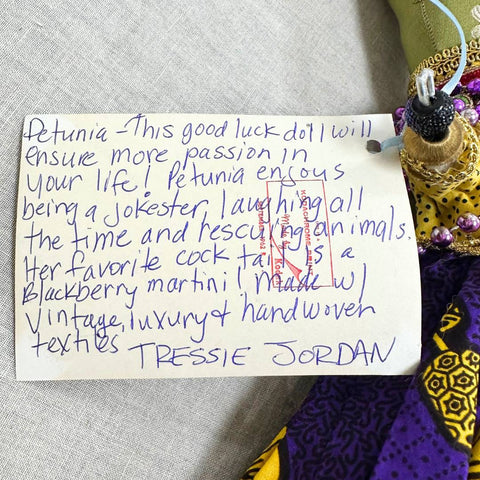 Petunia - This good luck doll will
ensure more passion in
your life! Petunia enjoys
being a jokester, laughing all
the time and rescuing animals.
Her favorite cock tail is a
Blackberry martini! Made w/
vintage, luxury & handwoven
textiles TRESSIE JORDAN